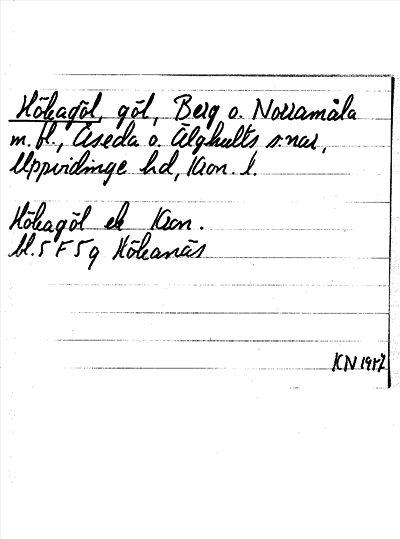 Hökagöl, göl, Berg o. Norramåla
m.fl., Åseda o. Älghults s:nar,
Uppvidinge hd, Kron. l.
Hökagöl ek Kron.
bl. 5 F 5 g Hökanäs
KN 1957